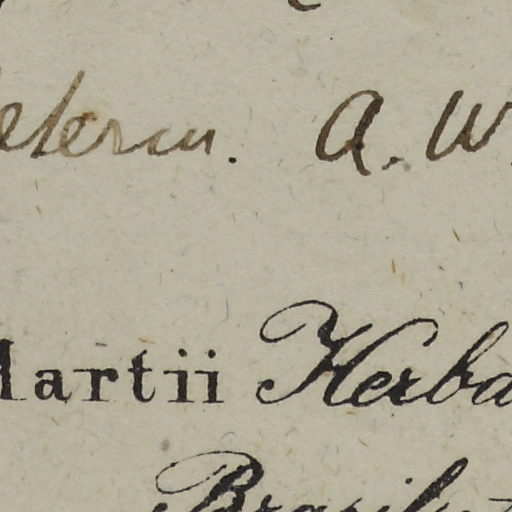 determ. A. W
Martii Herba
Brasil